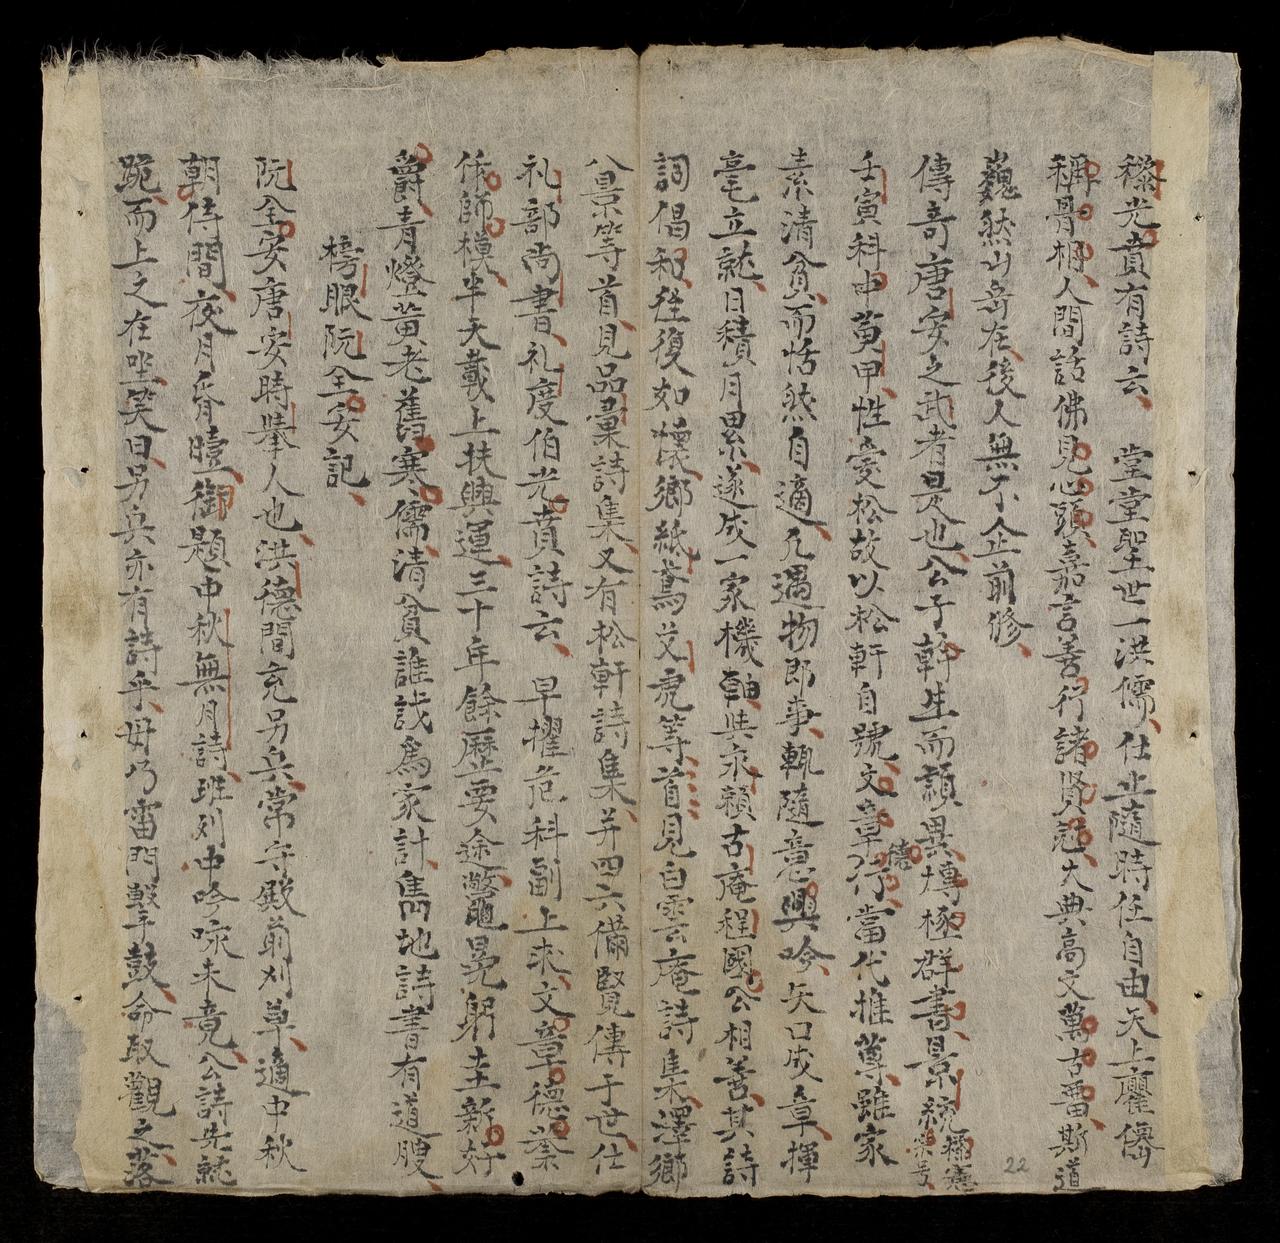 穆光賁有詩云、堂堂聖世一洪儒、仕止隨時任自由、天上臞儒
稱骨相、人間話佛見心頭、嘉言善行諸賢冠、大典高文萬古畱、斯道
巍然山岳在、後人無不企前修、
傳奇唐安之武者是也、公子幹生而頴異、博極群書、景統憲宗年号
壬寅科中黃甲、性愛松故以松軒自號、文章德行、當代推尊、雖家
素清貧、而恬然自適、凡遇物即事、輒隨意興吟、矢口成章、揮
毫立就、日積月累、遂成一家機軸、與永賴古庵程國公相善、其詩
詞倡和、往復如懷鄉紙鳶艾虎等首、見白雲庵詩集、澤鄉
八景等首、見品彙詩集、又有松軒詩集、并四六備覽、傳于世、仕
礼部尚書、礼度伯光賁詩云、早擢危科副上求、文章德業
伓師模、半天戴上扶興運、三十年餘歷要途、鼈黽晃躬圭新紆
爵、青燈黃老舊寒儒、清貧誰訝爲家計、雋地詩書有道腴、
榜眼阮全安記、
阮全安唐安時舉人也、洪德間充另兵、常守殿前刈草、適中秋
朝侍間、夜月有曀、御題中秋無月詩、班列中吟咏未竟、公詩先就
跪、而上之在坐、笑曰另兵亦有詩乎、毋乃雷門擊鼓、命取觀之、落
22